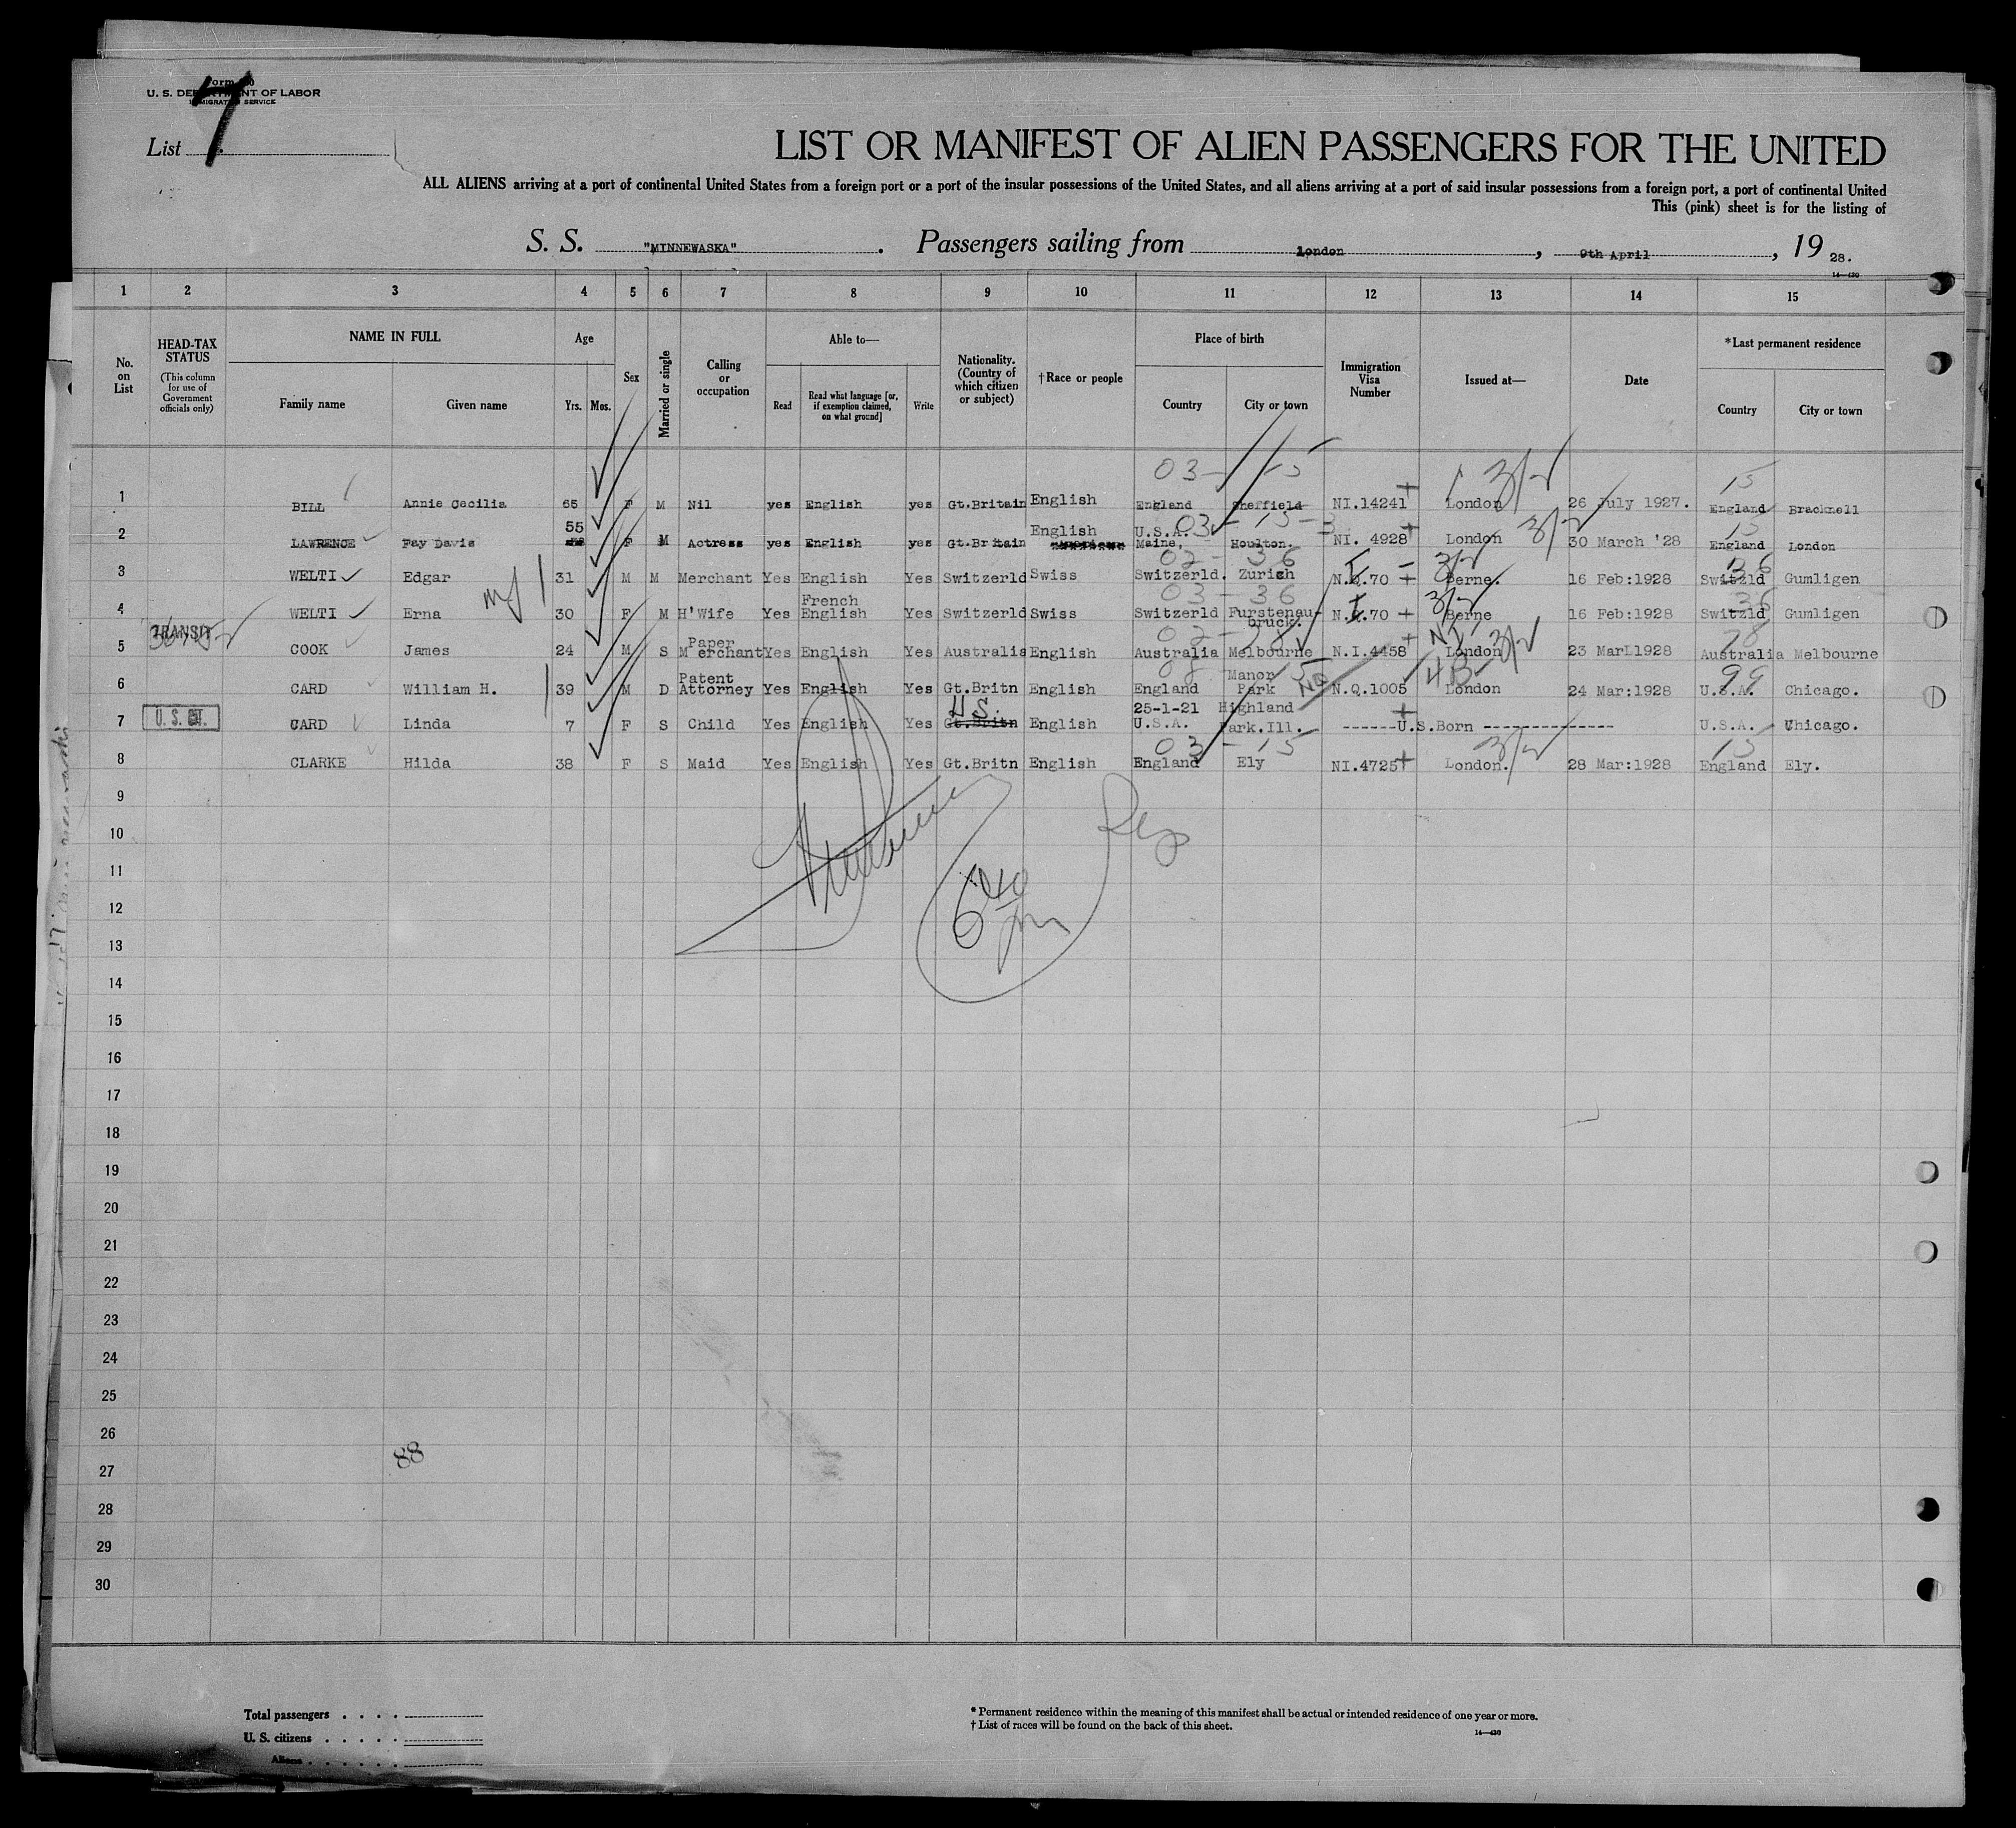 U. S. DEPARTMENT OF LABOR
IMMIGRATION SERVICE
List 7
LIST OR MANIFEST OF ALIEN PASSENGERS FOR THE UNITED
ALL ALIENS arriving at a port of continental United States from a foreign port or a port of the insular possessions of the United States, and all aliens arriving at a port of said insular possessions from a foreign port, a port of continental United
This (pink) sheet is for the listing of
S. S. "MINNEWASKA". Passengers sailing from london, 9th April, 19 28.
14—430
1 2 3 4 5 6 7 8 9 10 11 12 13 14 15
No. on List
HEAD-TAX STATUS (This column for use of Government officials only)
NAME IN FULL
Family name Given name
Age
Yrs. Mos.
Sex
Married or single
Calling or occupation
Able to—
Read Read what language [or, if exemption claimed, on what ground] Write
Nationality. (Country of which citizen or subject)
†Race or people
Place of birth
Country City or town
Immigration Visa Number
Issued at—
Date
*Last permanent residence
Country City or town
03- 15 3/2 15
1 BILL Annie Cecilia 65 F M Nil yes English yes Gt.Britain English England Sheffield NI.14241 London 26 July 1927. England Bracknell
55 English U.S.A. 03 - 15 - 3 3/2 15
2 LAWRENCE Fay Davis F M Actress yes English yes Gt.Britain Maine. Houlton. NI. 4928 London 30 March '28 England London
02 - 36 3/2 36
3 WELTI Edgar 31 M M Merchant Yes English Yes Switzerld Swiss Switzerld. Zurich N.Q.70 Berne. 16 Feb:1928 Switzld Gumligen
French 03 - 36 3/2 36
4 WELTI Erna 30 F M H'Wife Yes English Yes Switzerld Swiss Switzerld Furstenau-bruck. N.Q.70 Berne 16 Feb:1928 Switzld Gumligen
TRANSIT Paper 02 - 78 NI 3/2 78
5 COOK James 24 M S Merchant Yes English Yes Australis English Australia Melbourne N.I.4458 London 23 Mar1928 Australia Melbourne
Patent Manor NQ 4B 99
6 CARD William H. 39 M D Attorney Yes English Yes Gt.Britn English England Park N.Q.1005 London 24 Mar:1928 U.S.A. Chicago.
U.S. 25-1-21 Highland
7 CARD Linda 7 F S Child Yes English Yes Gt.Britn English U.S.A. Park.Ill. ------U.S.Born -------------- U.S.A. Chicago.
03 - 15 3/2 15
8 CLARKE Hilda 38 F S Maid Yes English Yes Gt.Britn English England Ely NI.4725 London. 28 Mar:1928 England Ely.
9
10
11
12
13
14
15
16
17
18
19
20
21
22
23
24
25
26
88
27
28
29
30
Total passengers . . . .
U. S. citizens . . . . .
Aliens . . . . . .
* Permanent residence within the meaning of this manifest shall be actual or intended residence of one year or more.
† List of races will be found on the back of this sheet.
14—430